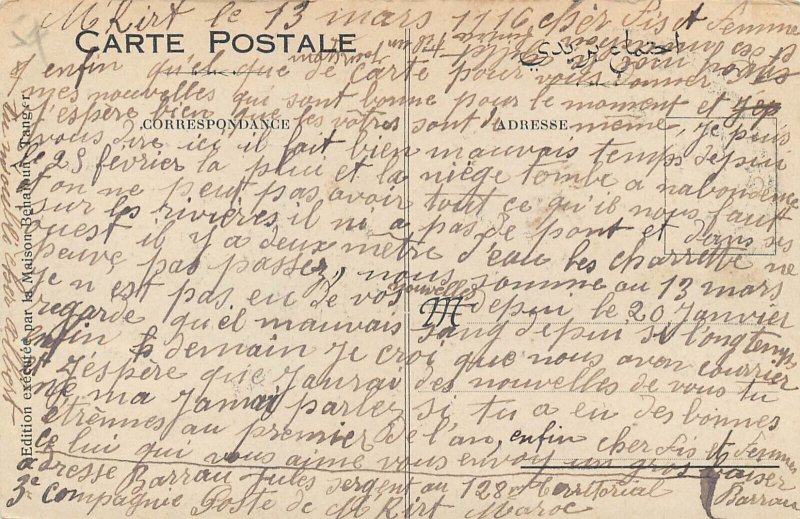 M'Kirt le 13 mars 1916 cher Fis et Femme
CARTE POSTALE
enfin quelque de carte pour vous donner
mes nouvelles qui sont bonne pour le moment et
j'espère bien que les votres sont de même, je puis
CORRESPONDANCE
ADRESSE
vous dire ici il fait bien mauvais temps depui
le 25 février la plui et la niège tombe a nabondence
l'on ne peut pas avoir tout ce qu'il nous faut
sur les rivières il ni a pas de pont et dans ses
ouest il y a deux mètre d'eau les charrette ne
peuve pas passez, nous somme au 13 mars
je n est pas eu de vos nouvelles depui le 20 Janvier
M
regarde quel mauvais sang depui si longtemps
enfin demain je croi que nous avon courrier
et j'éspère que j'aurai des nouvelles de vous tu
ne ma jamai parlez si tu a eu des bonnes
etrènnes au premier de l'an, enfin cher Fis et Femme
celui qui vous aime vous envoy un gros baiser
adresse Barrau jules sergent au 128e territorial Barrau
3e Compagnie Poste de M'Kirt Maroc
Edition exécutée par la Maison Benaioun-Tanger